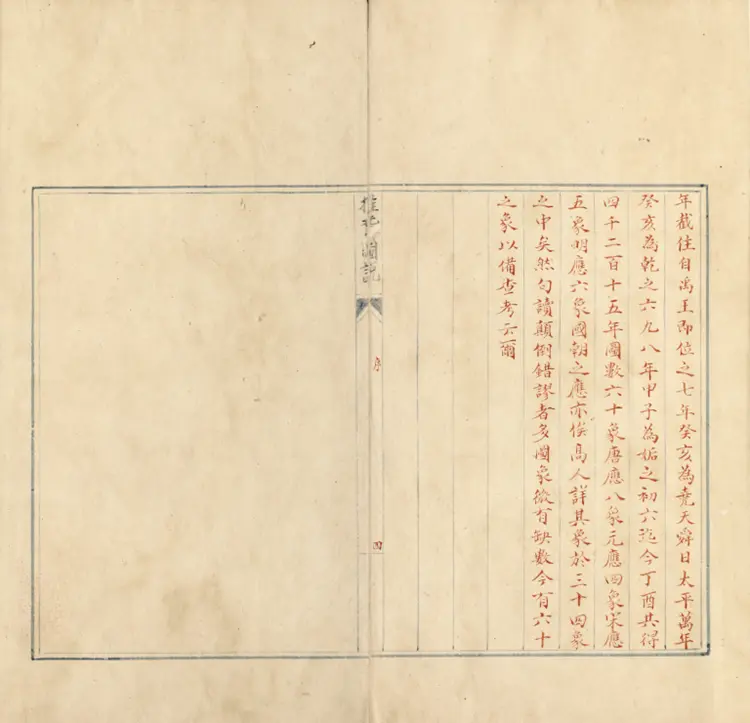 年截往自禹王即位之七年癸亥為堯天舜日太平萬年
癸亥為乾之六九八年甲子為姤之初六迄今丁酉共得
四千二百十五年圖數六十象唐應八象元應四象宋應
五象明應六象國朝之應亦俟高人詳其象於三十四象
之中矣然句讀顛倒錯謬者多圖象微有缺數今百六十
之象以備查考云爾
推背圖說
序
四